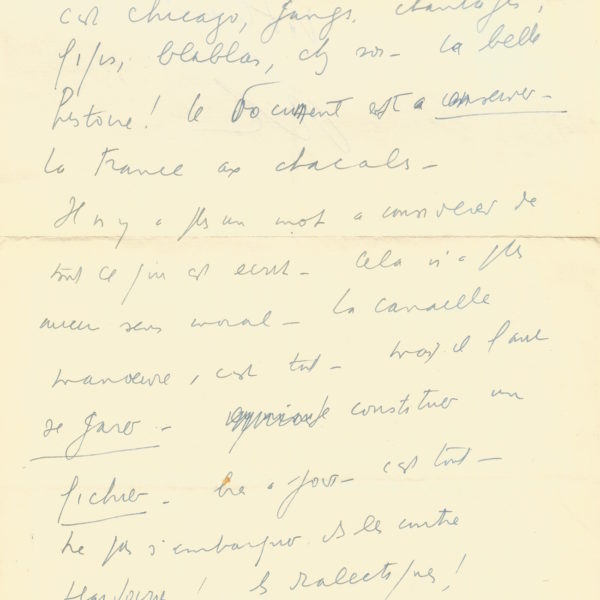 est chicago, gangs, chantages,
flics, blablas, etc
La belle
histoire! Le Document est à conserver -
La France aux chacals -
Il n'y a pas un mot a considerer de
tout ce qui est ecrit - Cela n'a pas
aucun sens moral - La canaille
manoeuvre, c'est tout - mais il faut
se garer - constituer un
fichier - a jour - c'est tout -
Ne pas s'embarquer ds les contre
manoeuvres! dialectiques!